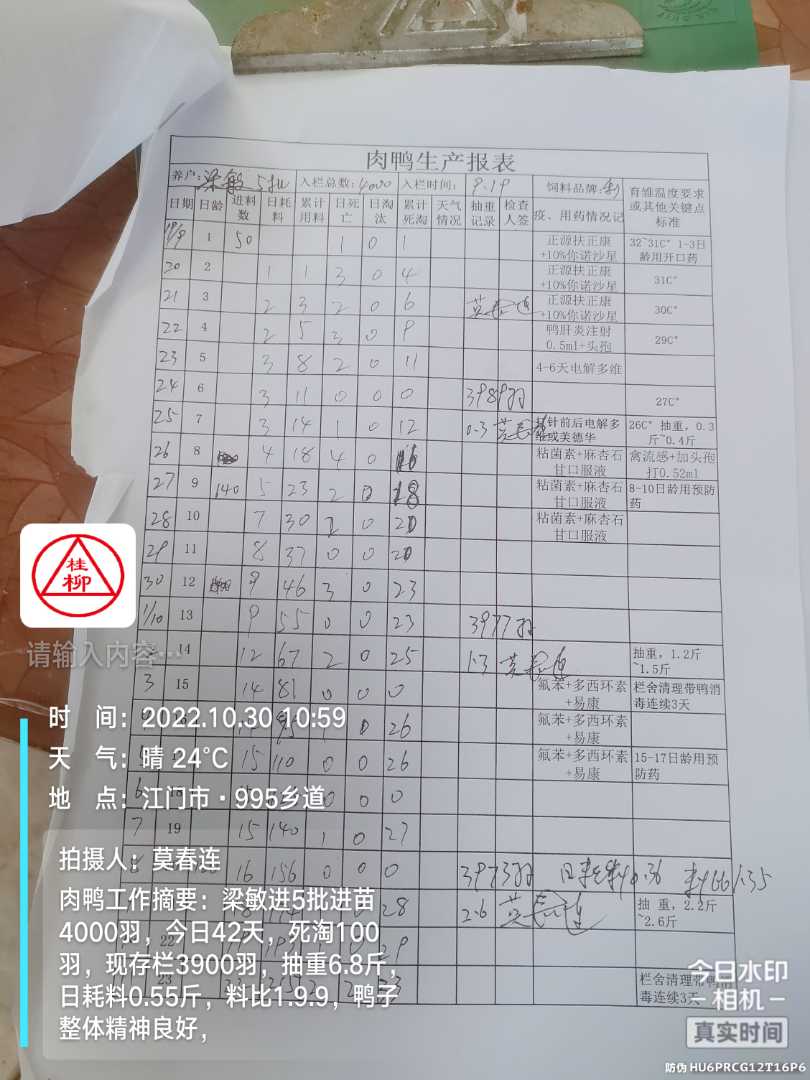 肉鸭生产报表
养户: 梁敏 5批 入栏总数: 4000 入栏时间: 9.19 饲料品牌: 育雏温度要求或其他关键点标准
日期 日龄 进料数 日耗料 累计用料 日死亡 日淘汰 累计死淘 天气情况 抽重记录 检查人签 疫、用药情况记
19/9 1 50 1 0 1 正源扶正康+10%你诺沙星 32~31C° 1-3日龄用开口药
20 2 1 1 3 0 4 正源扶正康+10%你诺沙星 31C°
21 3 2 3 2 0 6 莫春连 正源扶正康+10%你诺沙星 30C°
22 4 2 5 3 0 9 鸭肝炎注射0.5ml+头孢 29C°
23 5 3 8 2 0 11 4-6天电解多维
24 6 3 11 0 0 0 3989羽 27C°
25 7 3 14 1 0 12 0.3 莫春连 针前后电解多维或美德华 26C° 抽重，0.3斤~0.4斤
26 8 4 18 4 0 16 粘菌素+麻杏石甘口服液 禽流感+加头孢打0.52ml
27 9 140 5 23 2 0 18 粘菌素+麻杏石甘口服液 8-10日龄用预防药
28 10 7 30 2 0 20 粘菌素+麻杏石甘口服液
29 11 8 37 0 0 20
30 12 9 46 3 0 23
1/10 13 9 55 0 0 23 3977羽
2 14 12 67 2 0 25 1.3 莫春连 抽重，1.2斤~1.5斤
3 15 14 81 0 0 0 氟苯+多西环素+易康 栏舍清理带鸭消毒连续3天
0 26 氟苯+多西环素+易康
15 110 0 0 26 氟苯+多西环素+易康 15-17日龄用预防药
6 18 0 0 0
7 19 15 140 1 0 27
16 156 0 0 0 3973羽 日耗料0.36
28 2.6 莫春连 抽 重，2.2斤~2.6斤
22 29
23 栏舍清理带鸭消毒连续3天
桂柳
请输入内容…
时 间：2022.10.30 10:59
天 气：晴 24℃
地 点：江门市·995乡道
拍摄人：莫春连
肉鸭工作摘要：梁敏进5批进苗
4000羽，今日42天，死淘100
羽，现存栏3900羽，抽重6.8斤，
日耗料0.55斤，料比1.9.9，鸭子
整体精神良好，
今日水印
相机
真实时间
防伪 HU6PRCG12T16P6